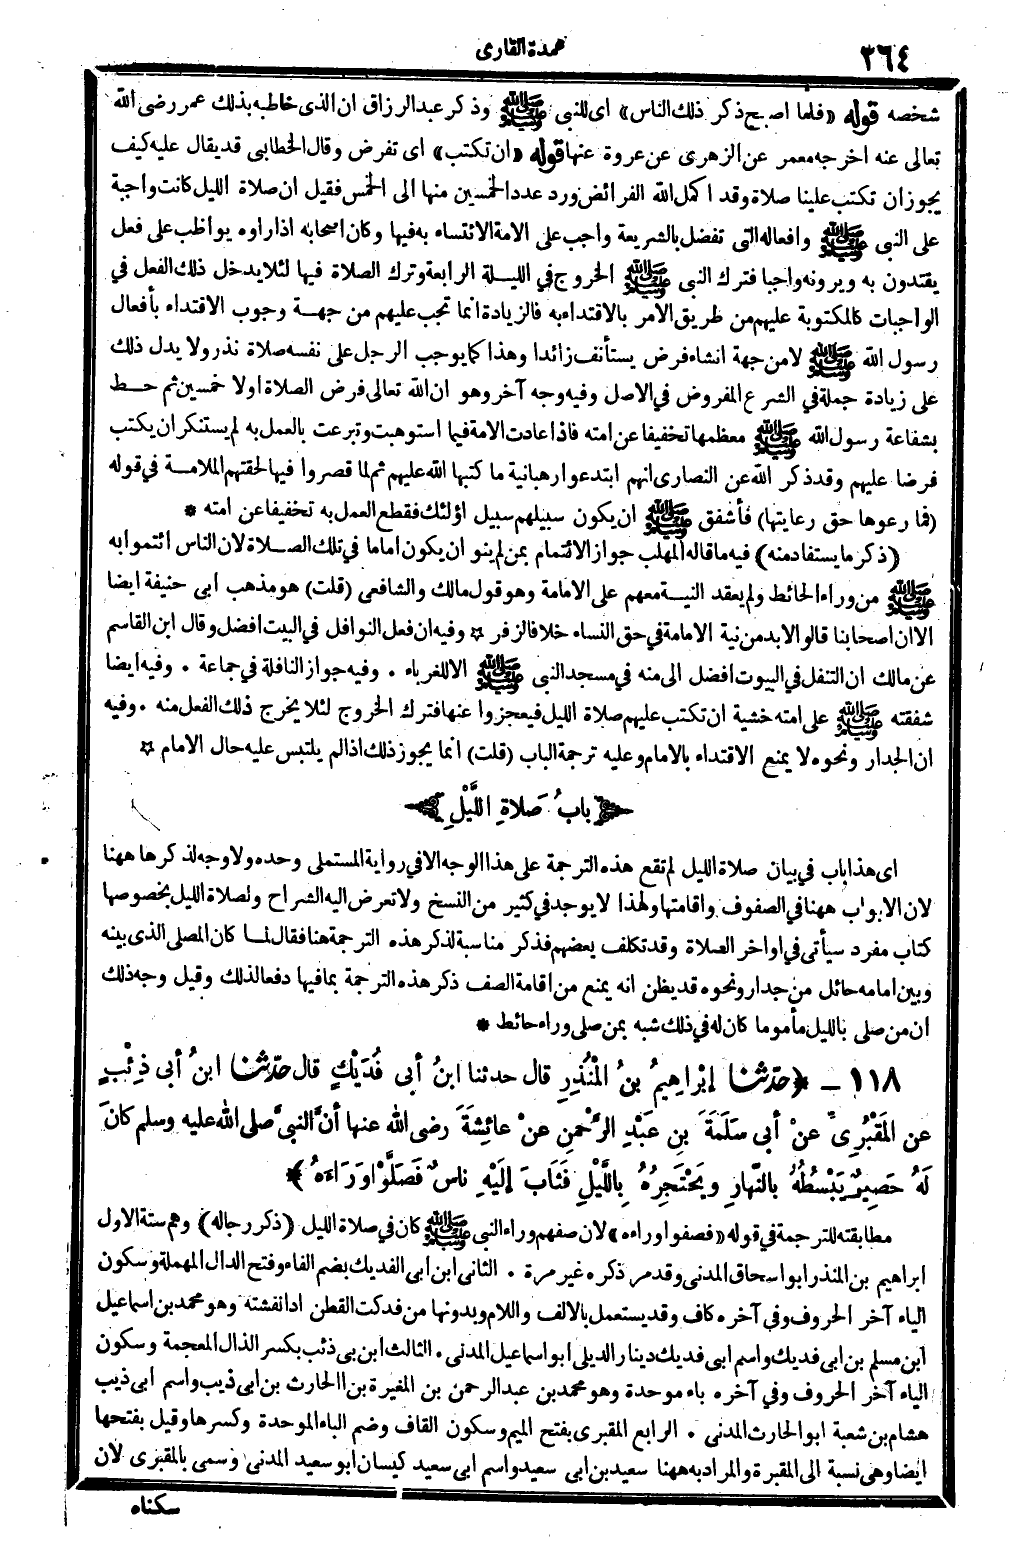 ٢٦٤
عمدة القارى
شخصه قوله «فلما اصبح ذكر ذلك الناس» اى للنبى ﷺ وذكر عبدالرزاق ان الذى خاطبه بذلك عمر رضى الله
تعالى عنه اخرجه معمر عن الزهرى عن عروة عنها قوله «ان تكتب» اى تفرض وقال الخطابى قد يقال عليه كيف
يجوز ان تكتب علينا صلاة وقد اكمل الله الفرائض ورد عدد الخمسين منها الى الخمس فقيل ان صلاة الليل كانت واجبة
على النبى ﷺ وافعاله التى تفضل بالشريعة واجب على الامة الائتساء به فيها وكان اصحابه اذا راوه يواظب على فعل
يقتدون به ويرونه واجبا فترك النبى ﷺ الخروج فى الليلة الرابعة وترك الصلاة فيها لئلا يدخل ذلك الفعل في
الواجبات كالمكتوبة عليهم من طريق الامر بالاقتداء به فالزيادة انما تجب عليهم من جهة وجوب الاقتداء بأفعال
رسول الله ﷺ لا من جهة انشاء فرض يستأنف زائدا وهذا كما يوجب الرجل على نفسه صلاة نذر ولا يدل ذلك
على زيادة جملة في الشرع المفروض في الاصل وفيه وجه آخر وهو ان الله تعالى فرض الصلاة اولا خمسين ثم حط
بشفاعة رسول الله ﷺ معظمها تخفيفا عن امته فاذا عادت الامة فيما استوهبت وتبرعت بالعمل به لم يستنكر ان يكتب
فرضا عليهم وقد ذكر الله عن النصارى انهم ابتدعوا رهبانية ما كتبها الله عليهم ثم لما قصروا فيها لحقتهم الملامة في قوله
(فما رعوها حق رعايتها) فأشفق ﷺ ان يكون سبيلهم سبيل اؤلئك فقطع العمل به تخفيفا عن امته *
(ذكر ما يستفاد منه) فيه ما قاله المهلب جواز الائتمام بمن لم ينو ان يكون اماما في تلك الصلاة لان الناس ائتموا به
ﷺ من وراء الحائط ولم يعقد النية معهم على الامامة وهو قول مالك والشافعى (قلت) هو مذهب ابى حنيفة ايضا
الا ان اصحابنا قالوا لابد من نية الامامة في حق النساء خلافا لزفر ☆ وفيه ان فعل النوافل في البيت افضل وقال ابن القاسم
عن مالك ان التنفل في البيوت افضل الى منه في مسجد النبى ﷺ الا للغرباء . وفيه جواز النافلة في جماعة . وفيه ايضا
شفقته ﷺ على امته خشية ان تكتب عليهم صلاة الليل فيعجزوا عنها فترك الخروج لئلا يخرج ذلك الفعل منه . وفيه
ان الجدار ونحوه لا يمنع الاقتداء بالامام وعليه ترجمة الباب (قلت) انما يجوز ذلك اذا لم يلتبس عليه حال الامام ☆
بابُ صَلاةِ اللَّيْلِ
اى هذا باب في بيان صلاة الليل لم تقع هذه الترجمة على هذا الوجه الا في رواية المستملى وحده ولا وجه لذكرها ههنا
لان الابواب ههنا في الصفوف واقامتها ولهذا لا يوجد في كثير من النسخ ولا تعرض اليه الشراح ولصلاة الليل بخصوصها
كتاب مفرد سيأتى في اواخر الصلاة وقد تكلف بعضهم فذكر مناسبة لذكر هذه الترجمة هنا فقال لما كان المصلى الذى بينه
وبين امامه حائل من جدار ونحوه قد يظن انه يمنع من اقامة الصف ذكر هذه الترجمة بما فيها دفعا لذلك وقيل وجه ذلك
ان من صلى بالليل مأموما كان له في ذلك شبه بمن صلى وراء حائط *
١١٨ – ﴿حدّثنا إبْراهيمُ بنُ المُنْذِرِ قال حدثنا ابنُ أبى فُدَيْكٍ قال حدّثنا ابنُ أبى ذِئْبٍ
عنِ المَقْبُرِىِّ عنْ أبى سَلَمَةَ بنِ عَبْدِ الرَّحْمنِ عنْ عائِشَةَ رضى الله عنها أنَّ النبىَّ صلى الله عليه وسلم كانَ
لَهُ حَصِيرٌ يَبْسُطُهُ بالنَّهارِ ويَحْتَجِرُهُ بِاللَّيْلِ فَثَابَ إلَيْهِ ناسٌ فَصَلَّوْا وَرَاءَهُ﴾
مطابقته للترجمة في قوله «فصفوا وراءه» لان صفهم وراء النبى ﷺ كان في صلاة الليل (ذكر رجاله) وهم ستة الاول
ابراهيم بن المنذر ابو اسحاق المدنى وقد مر ذكره غير مرة . الثانى ابن ابى الفديك بضم الفاء وفتح الدال المهملة وسكون
الياء آخر الحروف وفي آخره كاف وقد يستعمل بالالف واللام وبدونها من فدكت القطن اذا نفشته وهو محمد بن اسماعيل
ابن مسلم بن ابى فديك واسم ابى فديك دينار الديلى ابو اسماعيل المدنى . الثالث ابن بى ذئب بكسر الذال المعجمة وسكون
الياء آخر الحروف وفي آخره باء موحدة وهو محمد بن عبد الرحمن بن المغيرة بن االحارث بن ابى ذيب واسم ابى ذيب
هشام بن شعبة ابو الحارث المدنى . الرابع المقبرى بفتح الميم وسكون القاف وضم الباء الموحدة وكسرها وقيل بفتحها
ايضا وهى نسبة الى المقبرة والمراد به ههنا سعيد بن ابى سعيد واسم ابى سعيد كيسان ابو سعيد المدنى وسمى بالمقبرى لان
سكناه